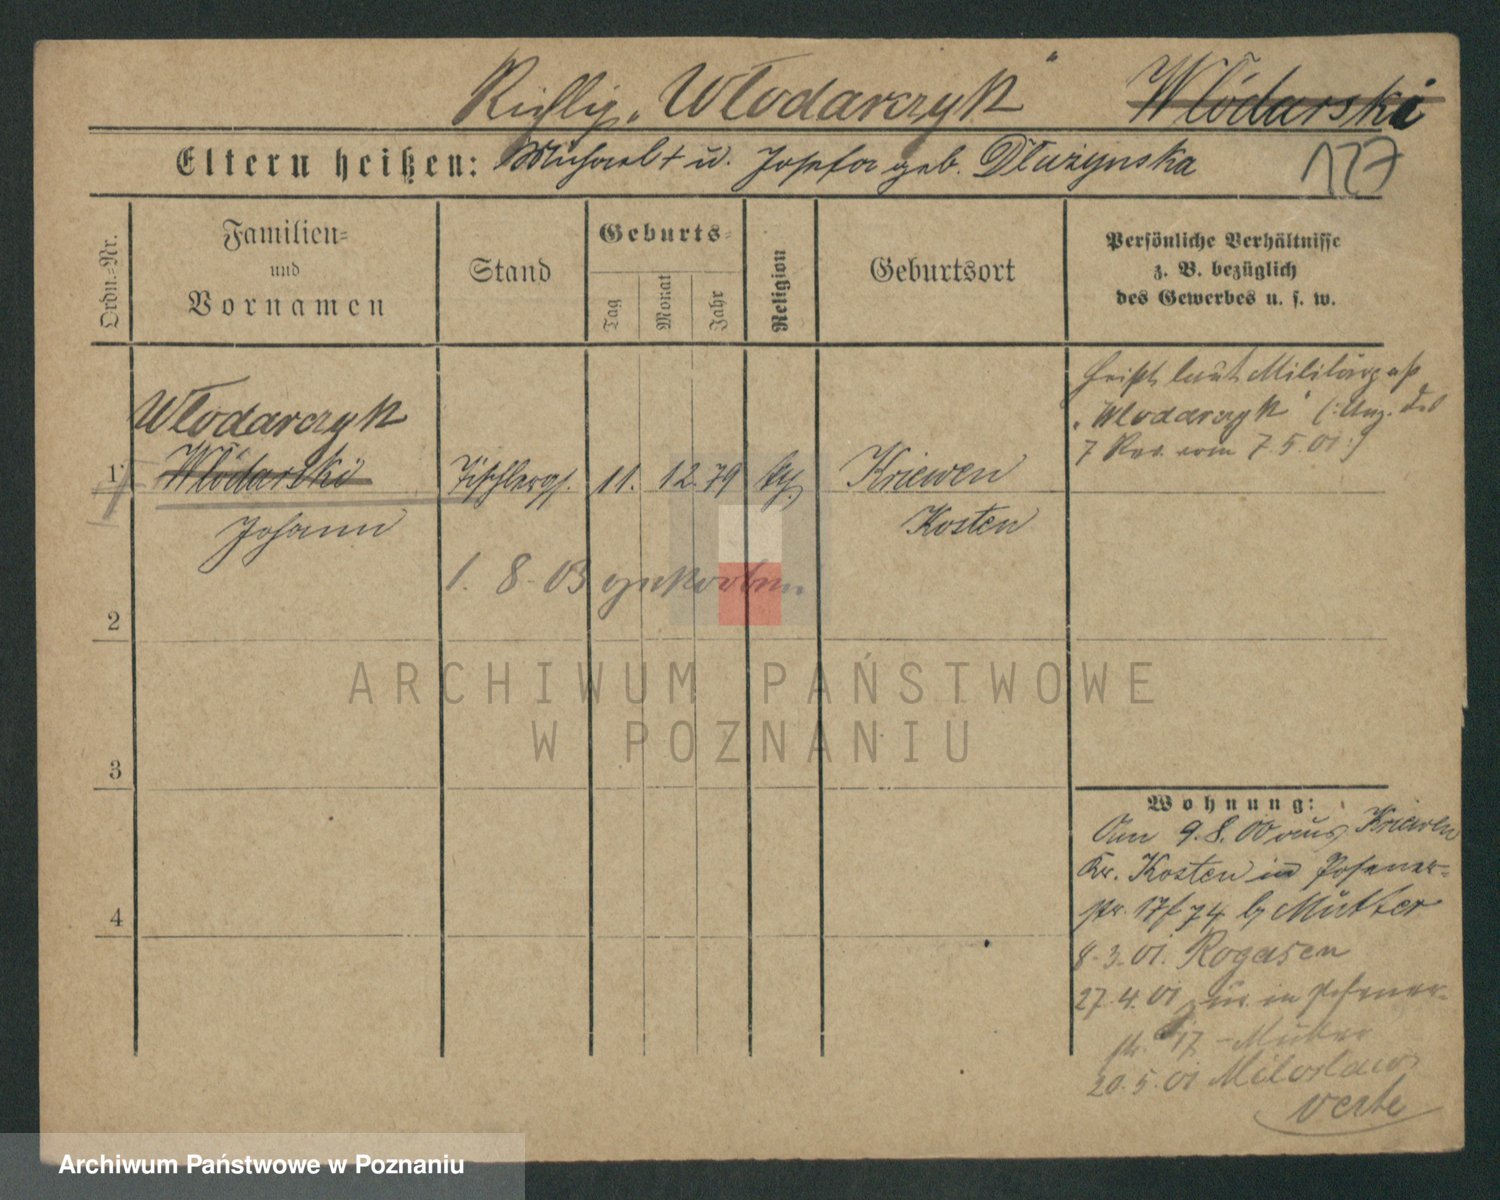 Richtig „Włodarczyk" Wlódarski
Eltern heißen: Michael † u. Josefa geb. Dłuzynska
127
Ordn.-Nr.
Familien-
und
Vornamen
Stand
Geburts-
Tag
Monat
Jahr
Religion
Geburtsort
Persönliche Verhältnisse
z. B. bezüglich
des Gewerbes u. s. w.
heißt laut Militärpaß
„Wlodarczyk" (: Anz. des
7 Rev. vom 7.5.01 :)
Włodarczyk
1 Wlódarski Tischlerges. 11. 12. 79 kth. Kriewen
Johann Kosten
1. 8. 03
2
3
4
Wohnung:
Am 9.8.00 aus Kriewen
Kr. Kosten in Posener-
str. 17 f 74 b/ Mutter
8.3.01. Rogasen
27.4.01 zur. in Posener-
str. 17 - Mutter
20.5.01 Miloslaw
verte
ARCHIWUM PAŃSTWOWE
W POZNANIU
Archiwum Państwowe w Poznaniu